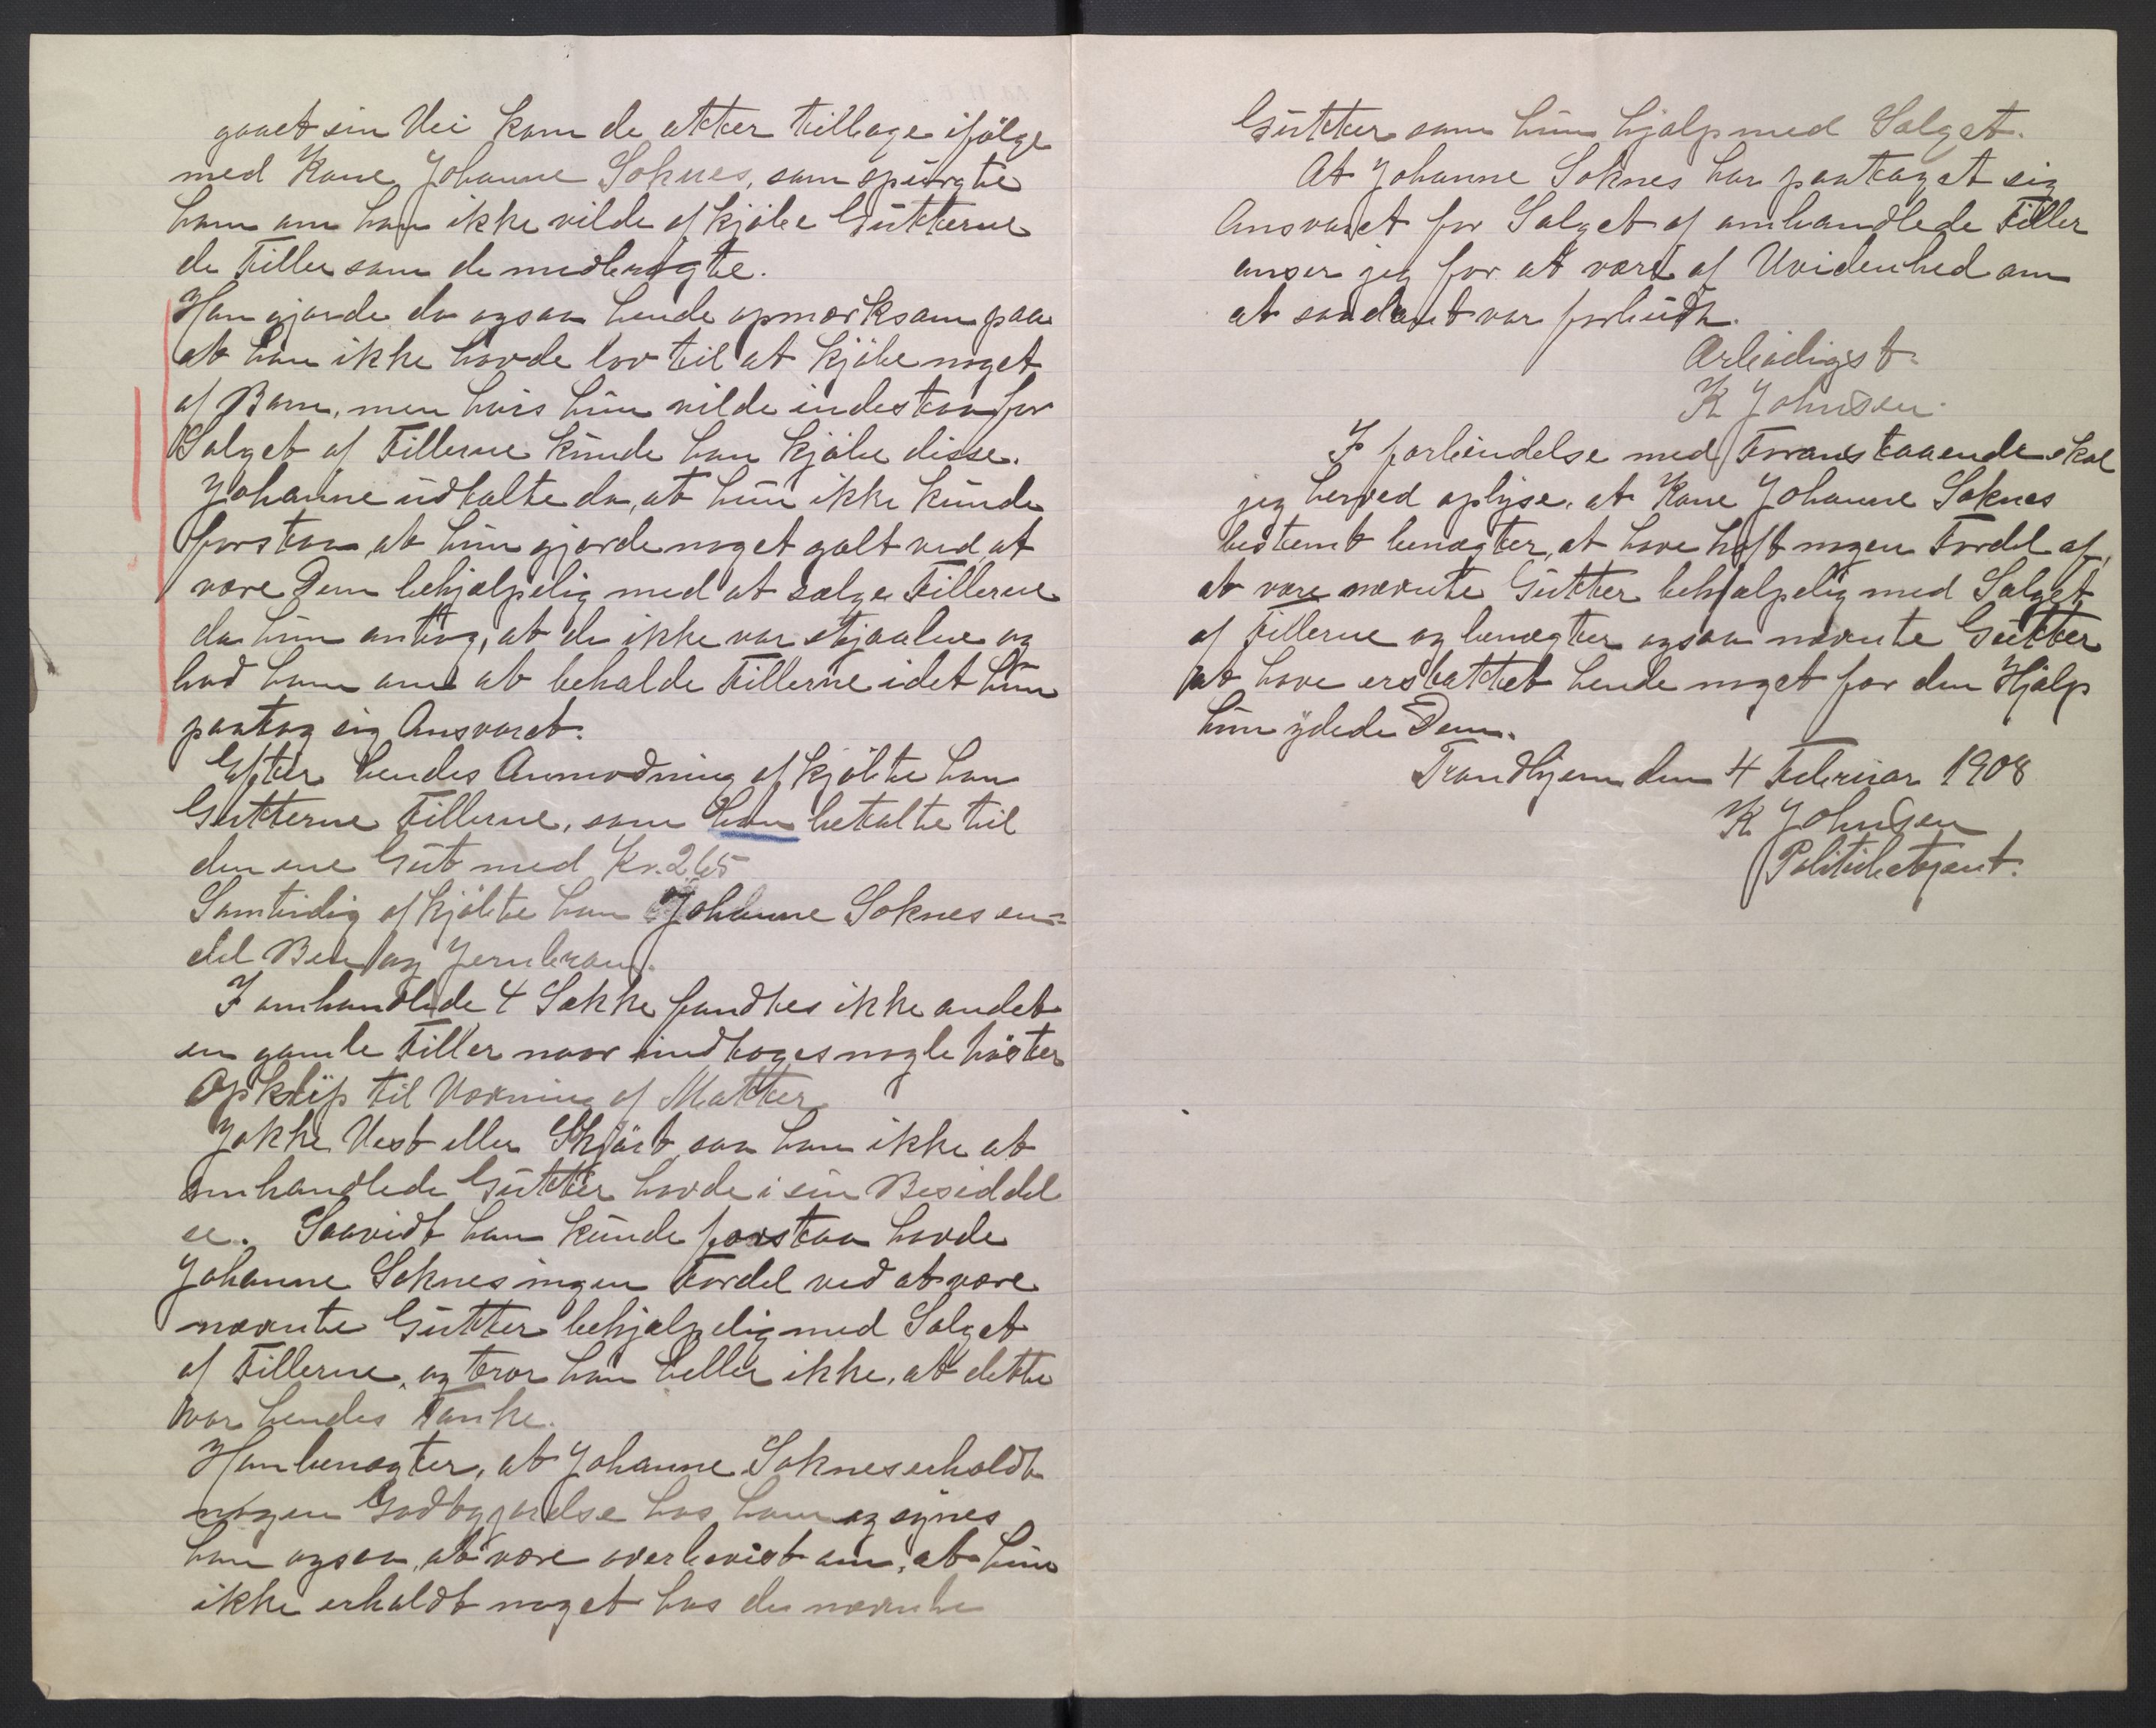 gaaet sin Vei kom de atter tilbage ifölge
med Kone Johanne Soknes, som spurgte
ham om han ikke vilde afkjöbe Gutterne
de Filler som de medbragte.
Han gjorde da ogsaa hende opmerksom paa
at han ikke havde lov til at kjöbe noget
af Barn, men hvis hun vilde indestaa for
Salget af Fillerne kunde han kjöbe disse.
Johanne udtalte da, at hun ikke kunde
forstaa at hun gjorde noget galt ved at
være Dem behjelpelig med at sælge Fillerne
da hun antog, at de ikke var stjaalne og
bad ham om at beholde Fillerne idet hun
paatog sig Ansvaret.
Efter hendes Anmodning afkjöbte han
Gutterne Fillerne, som han betalte til
den ene Gut med Kr. 2.65
Samtidig afkjöbte han Johanne Soknes en=
del Ben og Jernkram.
I omhandlede 4 Sække fandtes ikke andet
en gamle Filler naar undtoges nogle höster
Opklip til Vævning af Matter
Jakke Vest eller Skjört saa han ikke at
omhandlede Gutter havde i sin Besiddel
se. Saavidt han kunde forstaa havde
Johanne Soknes ingen Fordel ved at være
nævnte Gutter behjælpelig med Salget
af Fillerne, og tror han heller ikke, at dette
var hendes Tanke.
Han benægter, at Johanne Soknes erholdt
nogen Godtgjørelse hos ham og synes
han ogsaa, at være overbevist om, at hun
ikke erholdt noget hos de nævnte
Gutter som hun hjalp med Salget.
At Johanne Soknes har paataget sig
Ansvaret for Salget af omhandlede Filler
anser jeg for at være af Uvidenhed om
at saadant var forbudt.
Ærbødigst
K Johnsen.
I forbindelse med Foranstaaende skal
jeg herved oplyse, at Kone Johanne Soknes
bestemt benægter, at have haft nogen Fordel af,
at være nævnte Gutter behjælpelig med Salget
af Fillerne og benægter ogsaa nævnte Gutter
at have erstattet hende noget for den Hjælp
hun ydede Dem.
Trondhjem den 4 Februar 1908
K Johnsen
Politibetjent.